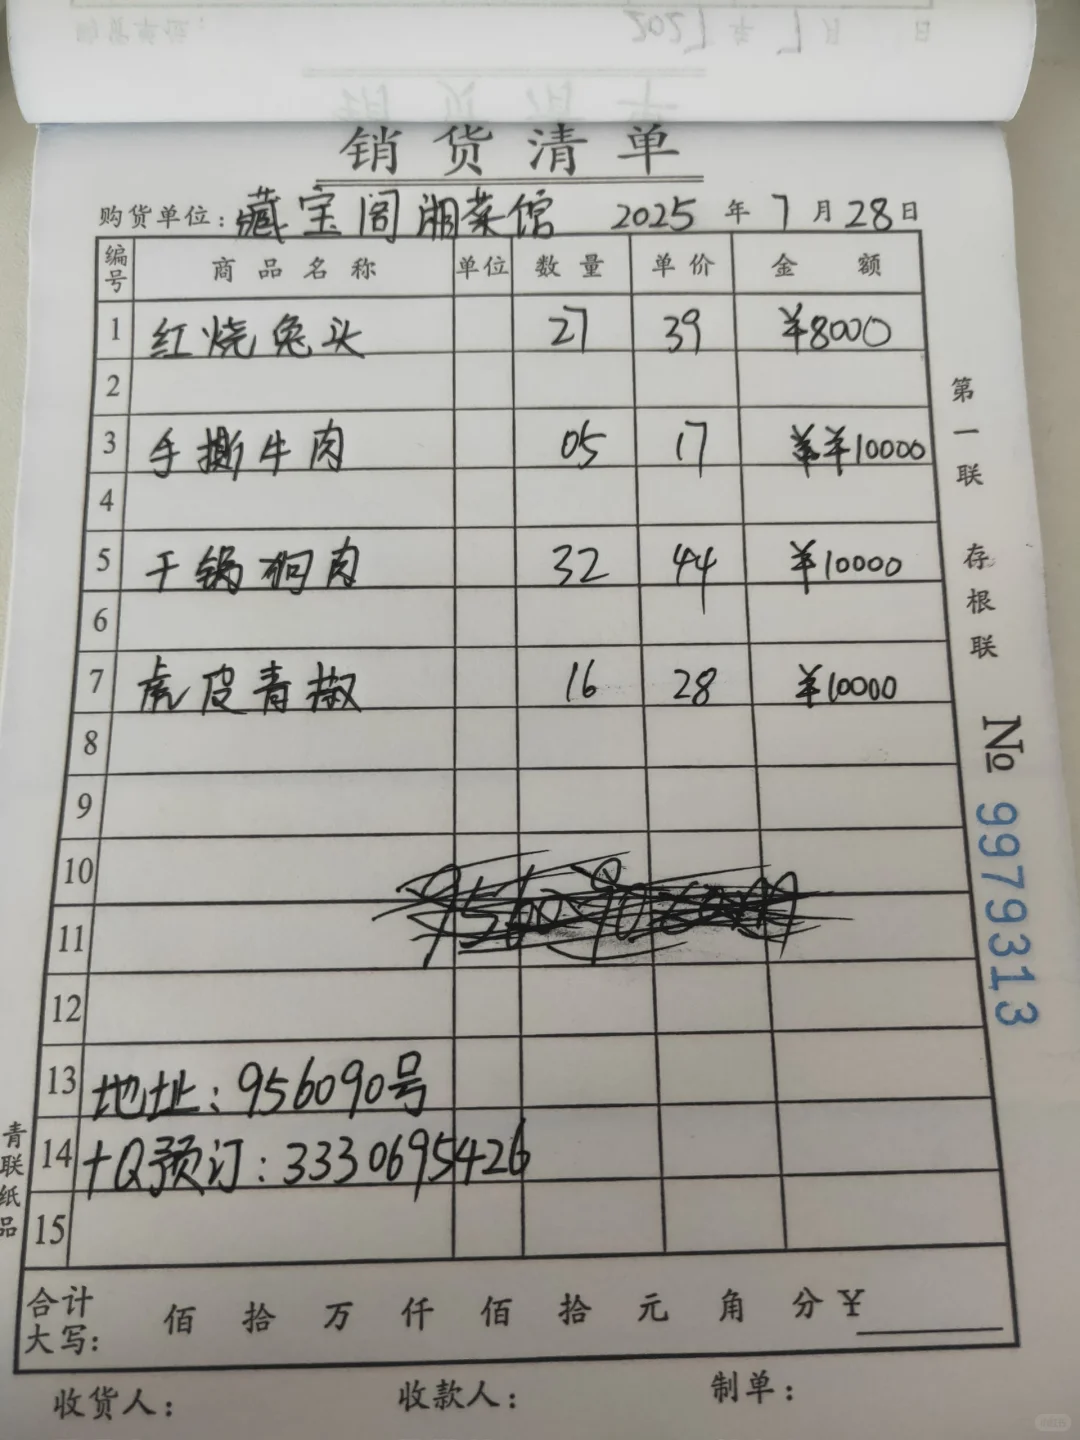 销货清单
购货单位：藏宝阁湘菜馆 2025 年 7 月 28 日
编号 商品名称 单位 数量 单价 金额
1 红烧兔头 27 39 ¥8000
2
3 手撕牛肉 05 17 ¥10000
4
5 干锅狗肉 32 44 ¥10000
6
7 虎皮青椒 16 28 ¥10000
8
9
10
11
12
13 地址：956090号
14 +Q预订：3330695426
15
合计大写： 佰 拾 万 仟 佰 拾 元 角 分 ¥
收货人： 收款人： 制单：
第一联 存根联
№ 9979313
青联纸品